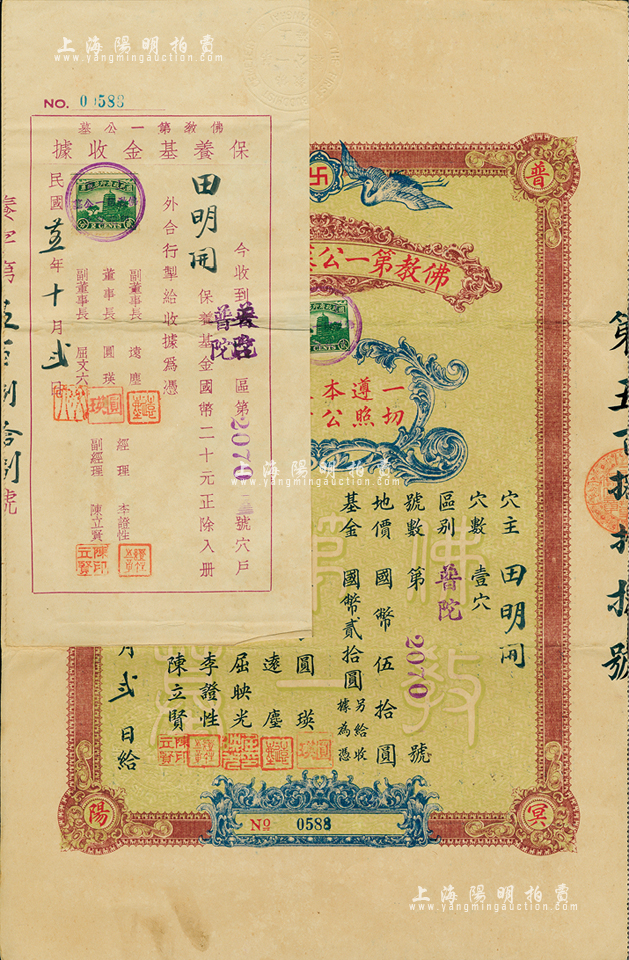 上海陽明拍賣
www.yangmingauction.com
NO. 0588
佛教第一公墓
保養基金收據
今收到普陀區第2070號穴戶
普陀
田明開
保養基金國幣二十元正除入册
外合行掣給收據為憑
副董事長 遠塵
董事長 圓瑛
副董事長 屈文六
經理 李證性
副經理 陳立賢
陳印立賢
民國五年十月弍日
2 CENTS
普
卍
佛教第一公
CENTS
一切
遵照
本公
穴主 田明開
穴數 壹穴
區別 普陀
號數 第 2070 號
地價 國幣伍拾圓
基金 國幣貳拾圓 另給收據為憑
圓瑛
遠塵
屈映光
李證性
陳立賢
陳印立賢
月弍日給
佛教第一
陽
冥
No 0588
第五百捌拾捌號
上海陽明拍賣
www.yangmingauction.com
上海陽明拍賣
www.yangmingauction.com